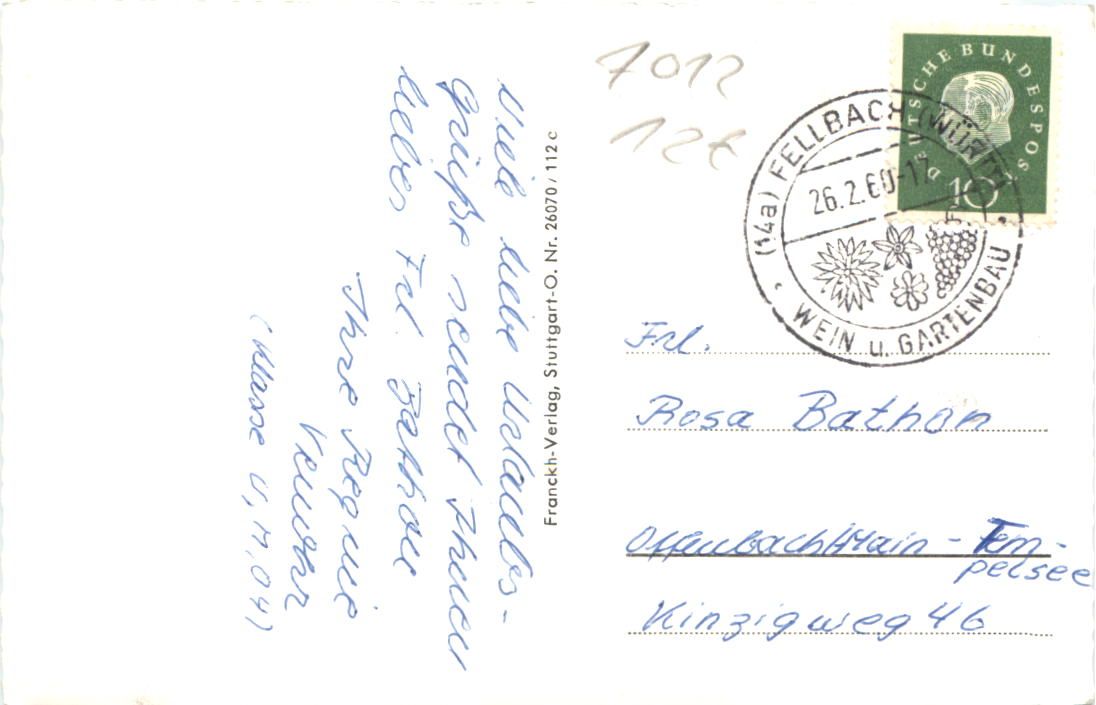 Viele liebe Urlaubs-
Grüße sendet Ihnen
liebes Frl. Bathon
Ihre Regine
(Klasse
Franckh-Verlag, Stuttgart-O. Nr. 26070/112 c
7012
12€
DEUTSCHE BUNDESPOST
10
(14a) FELLBACH (WÜRTT)
26.2.60-17
WEIN u. GARTENBAU
Frl.
Rosa Bathon
Offenbach/Main - Tem-
pelsee
Kinzigweg 46